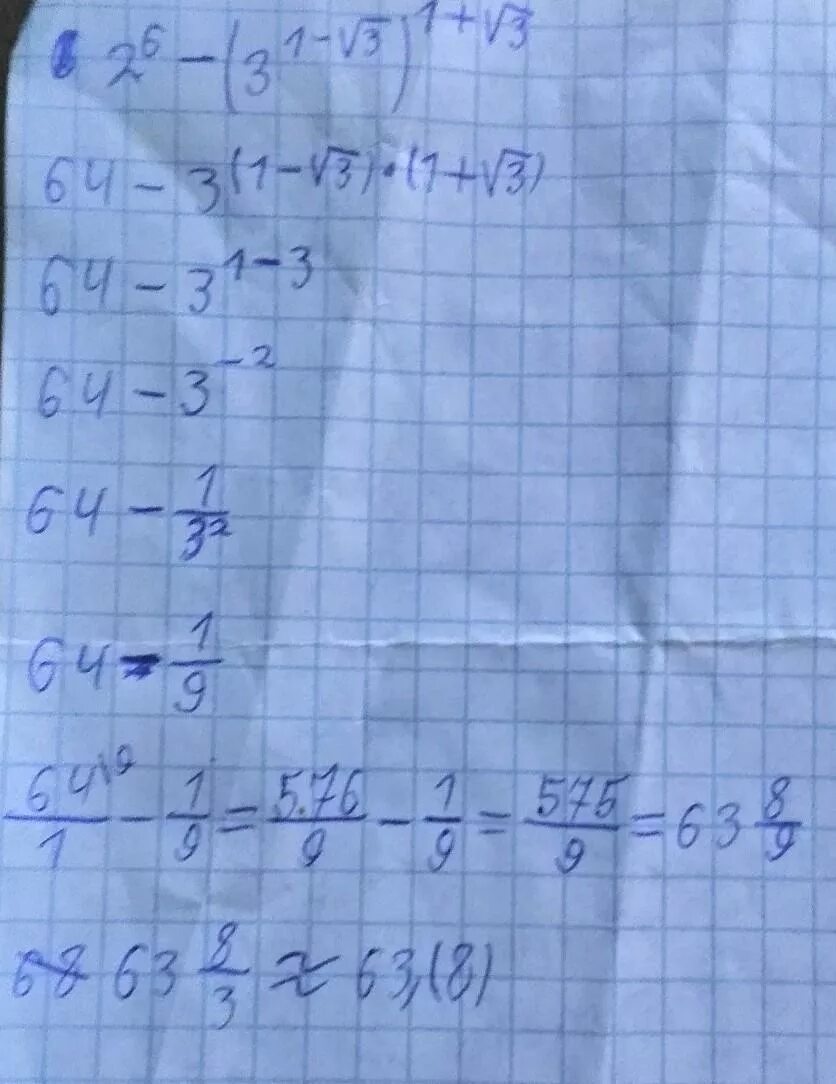 2⁶ − (3^(1−√3))^(1+√3)
64 − 3^((1−√3)·(1+√3))
64 − 3^(1−3)
64 − 3⁻²
64 − 1/3²
64 − 1/9
64\9/1 − 1/9 = 5.76/9 − 1/9 = 575/9 = 63 8/9
63 8/3 ≈ 63,(8)